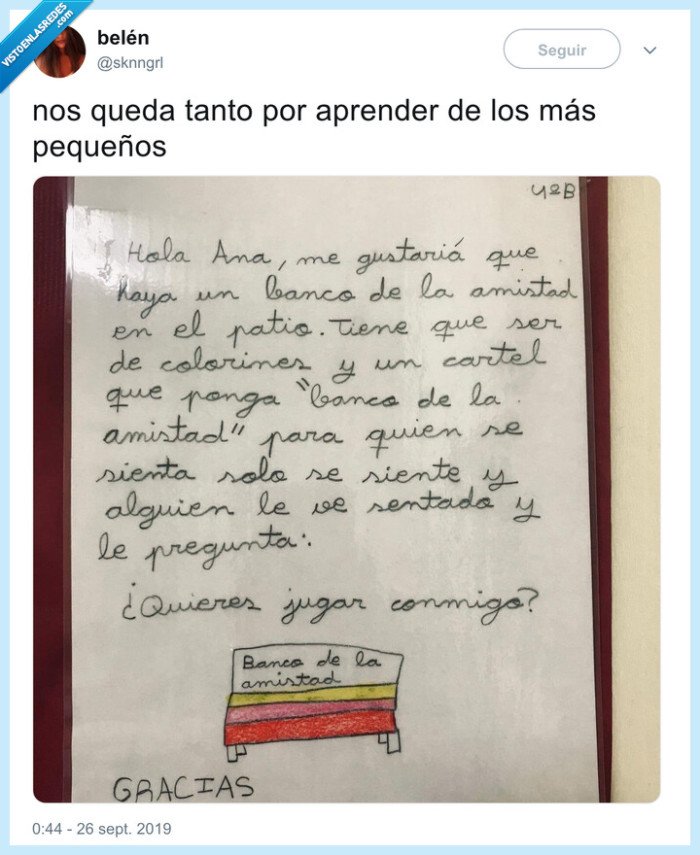 VISTOENLASREDES
.com
belén
@sknngrl
Seguir
nos queda tanto por aprender de los más
pequeños
4ºB
Hola Ana, me gustariá que
haya un banco de la amistad
en el patio. Tiene que ser
de colorines y un cartel
que ponga "banco de la
amistad" para quien se
sienta solo se siente y
alguien le ve sentado y
le pregunta:
¿Quieres jugar conmigo?
Banco de la
amistad
GRACIAS
0:44 - 26 sept. 2019